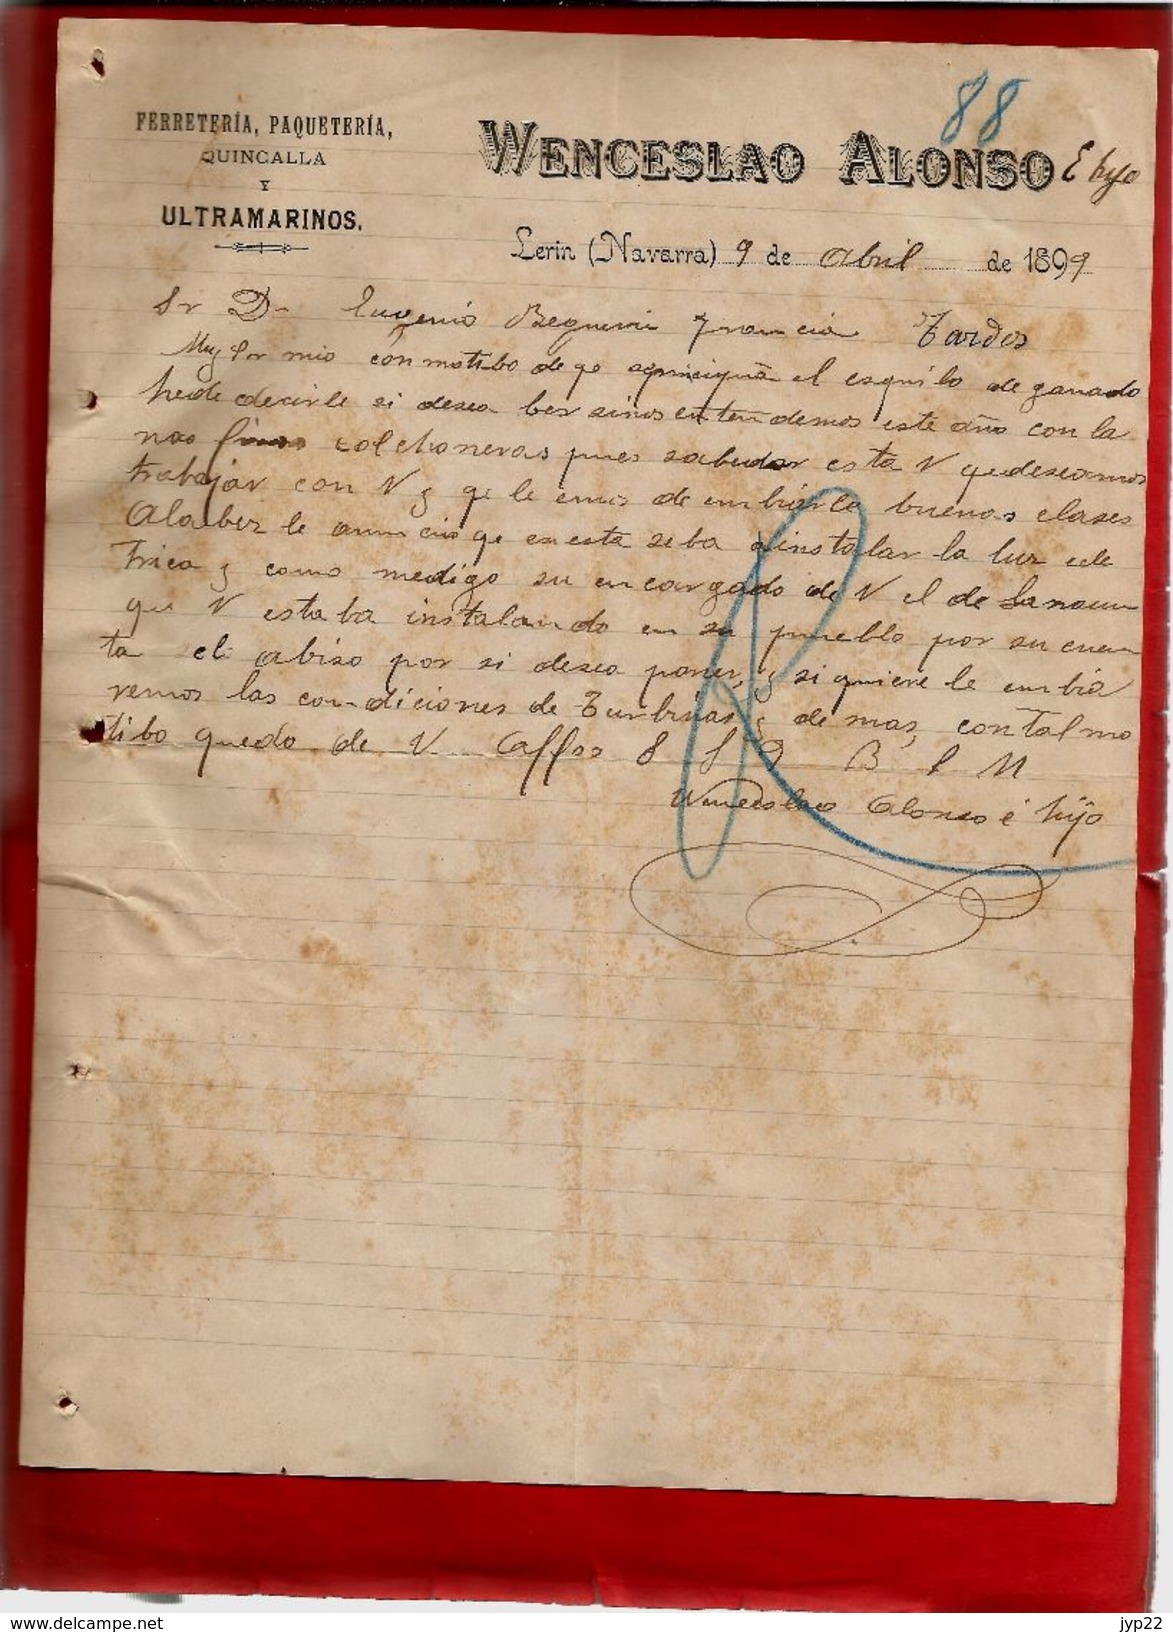 88
FERRETERÍA, PAQUETERÍA,
QUINCALLA
Y
ULTRAMARINOS.
WENCESLAO ALONSO E hijo
Lerin (Navarra) 9 de Abril de 1899
Sr Dn Eugenio Francia Tardes
Muy Sor mio con motibo de qe el esquilo de ganado
hede decirle si desea ber sinos entendemos este año con la
nas finas colchoneras pues esta V quedeseamos
trabajar con V y qe le emos de embiarle buenas clases
Alaber le anuncio qe enesta seba a instalar la luz elec
trica y como medigo su encargado de V el de
que V estaba instalando en su pueblo por su cuen
ta el abiso por si desea poner, y si quiere le embia
remos las condiciones de Turbinas y demas, contalmo
tibo quedo de V Affso S S Q B S M
Wenceslao Alonso é hijo
www.delcampe.net
jyp22